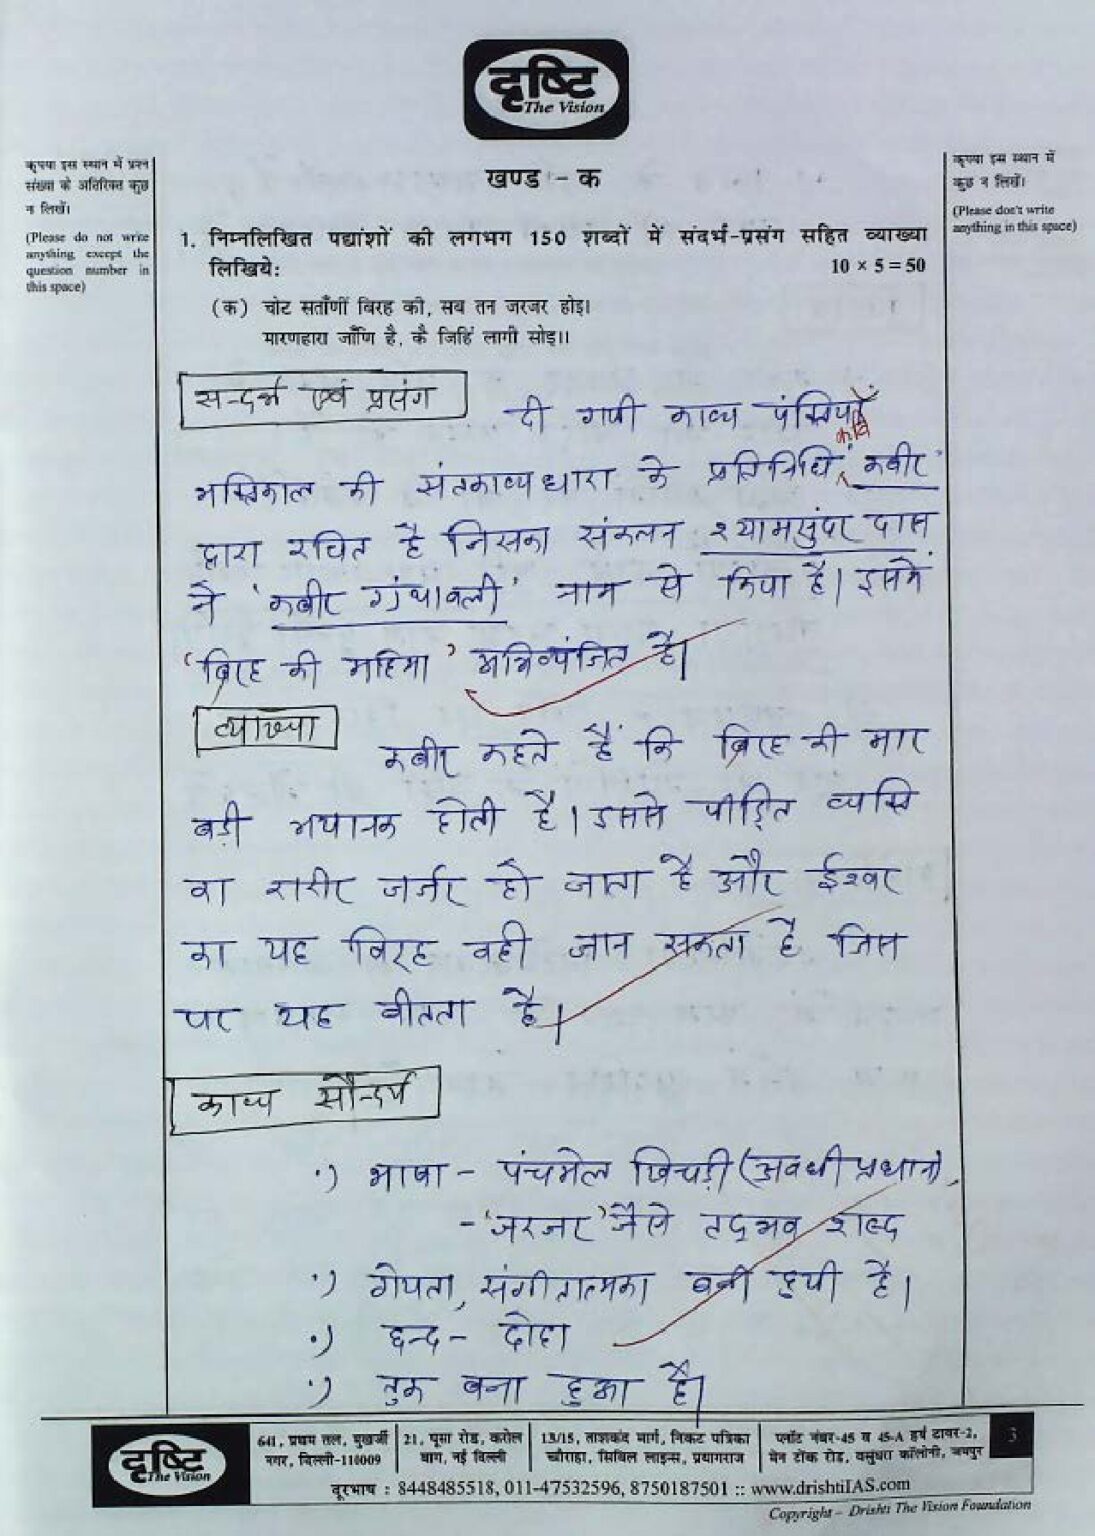 दृष्टि
The Vision
कृपया इस स्थान में प्रश्न
संख्या के अतिरिक्त कुछ
न लिखें।
(Please do not write
anything except the
question number in
this space)
कृपया इस स्थान में
कुछ न लिखें।
(Please don't write
anything in this space)
खण्ड - क
1. निम्नलिखित पद्यांशों की लगभग 150 शब्दों में संदर्भ-प्रसंग सहित व्याख्या
लिखिये: 10 × 5 = 50
(क) चोट सताँणीं बिरह की, सब तन जरजर होइ।
मारणहारा जाँणि है, कै जिहिं लागी सोइ।।
सन्दर्भ एवं प्रसंग
दी गयी काव्य पंक्तियाँ
कवि
भक्तिकाल की संतकाव्यधारा के प्रतिनिधि 'कबीर'
द्वारा रचित है जिसका संकलन श्यामसुंदर दास
ने 'कबीर ग्रंथावली' नाम से किया है। इसमें
'विरह की महिमा' अभिव्यंजित है।
व्याख्या
कबीर कहते हैं कि विरह की मार
बड़ी भयानक होती है। इससे पीड़ित व्यक्ति
का शरीर जर्जर हो जाता है और ईश्वर
का यह विरह वही जान सकता है जिस
पर यह बीतता है।
काव्य सौन्दर्य
·) भाषा - पंचमेल खिचड़ी (अवधी प्रधान),
- 'जरजर' जैसे तद्भव शब्द
·) गेयता, संगीतात्मका बनी हुयी है।
·) छन्द - दोहा
·) तुक बना हुआ है।
दृष्टि
The Vision
641, प्रथम तल, मुखर्जी
नगर, दिल्ली-110009
21, पूसा रोड, करोल
बाग, नई दिल्ली
13/15, ताशकंद मार्ग, निकट पत्रिका
चौराहा, सिविल लाइन्स, प्रयागराज
प्लॉट नंबर-45 व 45-A हर्ष टावर-2,
मेन टोंक रोड, वसुंधरा कॉलोनी, जयपुर
3
दूरभाष : 8448485518, 011-47532596, 8750187501 :: www.drishtiIAS.com
Copyright – Drishti The Vision Foundation